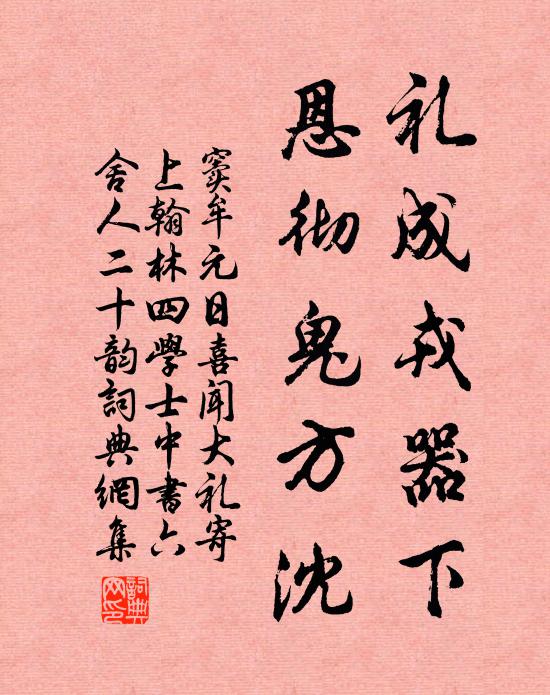 礼成戎器下
恩彻鬼方沈
窦牟元日喜闻大礼寄
上翰林四學士中書六
舍人二十韵詞典網集